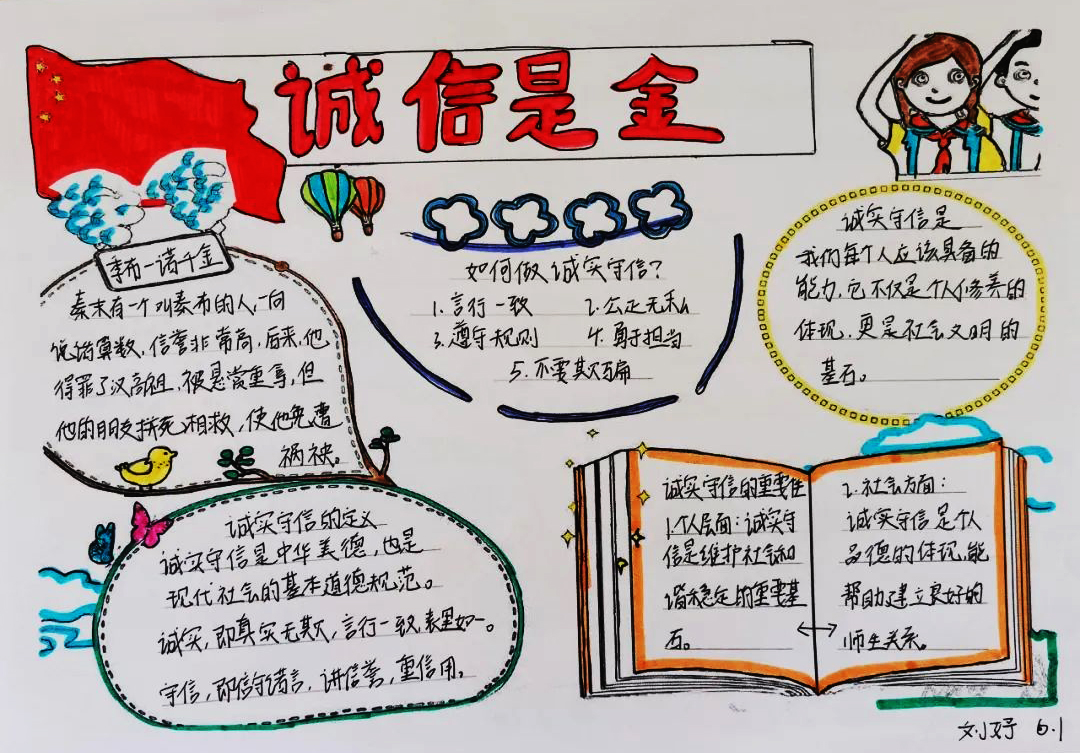 诚信是金
季布一诺千金
秦末有一个叫季布的人,一向
说话算数,信誉非常高,后来,他
得罪了汉高祖,被悬赏重寻,但
他的朋友拼死相救,使他免遭
祸秧。
如何做诚实守信?
1.言行一致 2.公正无私
3.遵守规则 4.勇于担当
5.不要欺骗
诚实守信是
我们每个人应该具备的
能力,它不仅是个人修养的
体现,更是社会文明的
基石。
诚实守信的定义
诚实守信是中华美德,也是
现代社会的基本道德规范。
诚实,即真实无欺,言行一致,表里如一。
守信,即信守诺言,讲信誉,重信用。
诚实守信的重要性
1.个人层面:诚实守
信是维护社会和
谐稳定的重要基
石。
2.社会方面:
诚实守信是个人
品德的体现,能
帮助建立良好的
师生关系。
刘妤 6.1